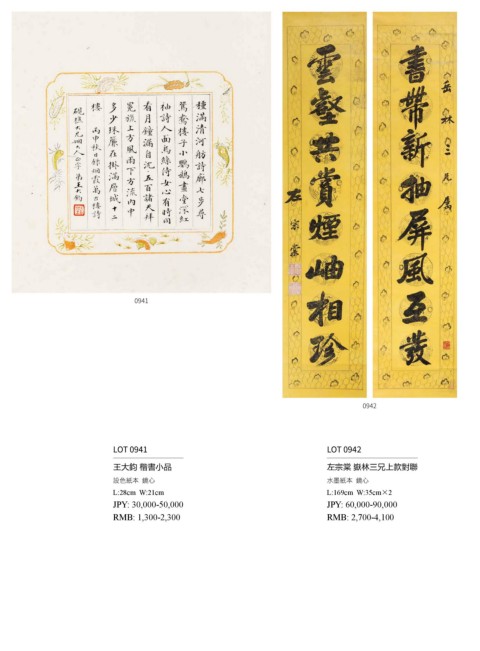 種滿清河舫詩廊七步尋
鴦樓子小鸚鵡畫堂深紅
袖詩人面絲待女心有時
有月鐘滿自沉五百諸天拜
上方風雨下方流內中
多少珠簾在掛滿層城十二
樓 丙中秋日萬古樓詩
大兄大人弟王大鈞
0941
書帶新抽屏風互發
岳林三兄屬
雲壑共賞煙岫相珍
左宗棠
0942
LOT 0941
王大鈞 楷書小品
設色紙本 鏡心
L:28cm W:21cm
JPY: 30,000-50,000
RMB: 1,300-2,300
LOT 0942
左宗棠 嶽林三兄上款對聯
水墨紙本 鏡心
L:169cm W:35cm×2
JPY: 60,000-90,000
RMB: 2,700-4,100